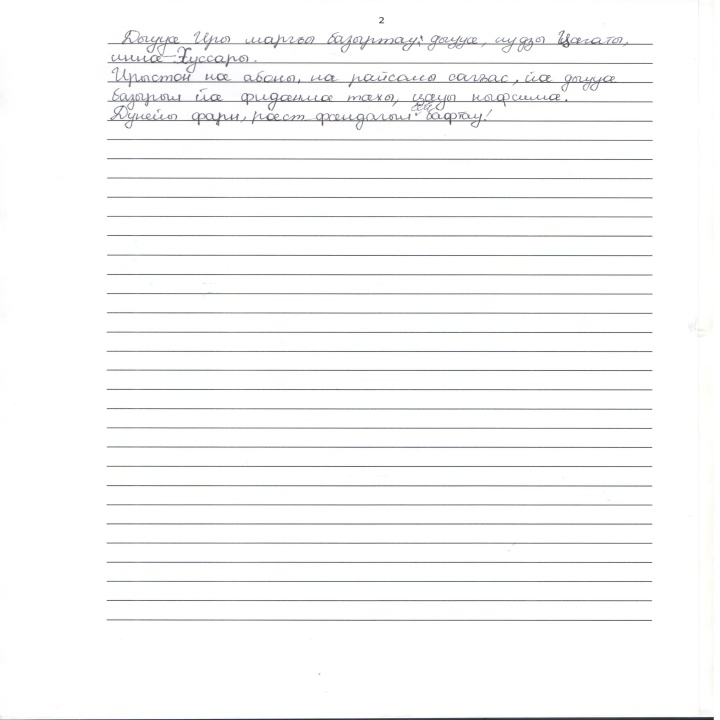 2
Дыууæ Иры маргъы базыртау: дыууæ, иу дзы Цæгаты,
иннæ – Хуссары.
Ирыстон нæ абоны, на райсомы сагъæс, йæ дыууæ
базырыл йæ фидæнмæ тæхы, цæуы ныфсимæ.
Дунейы фарн, рæст фæндагыл бафтау!